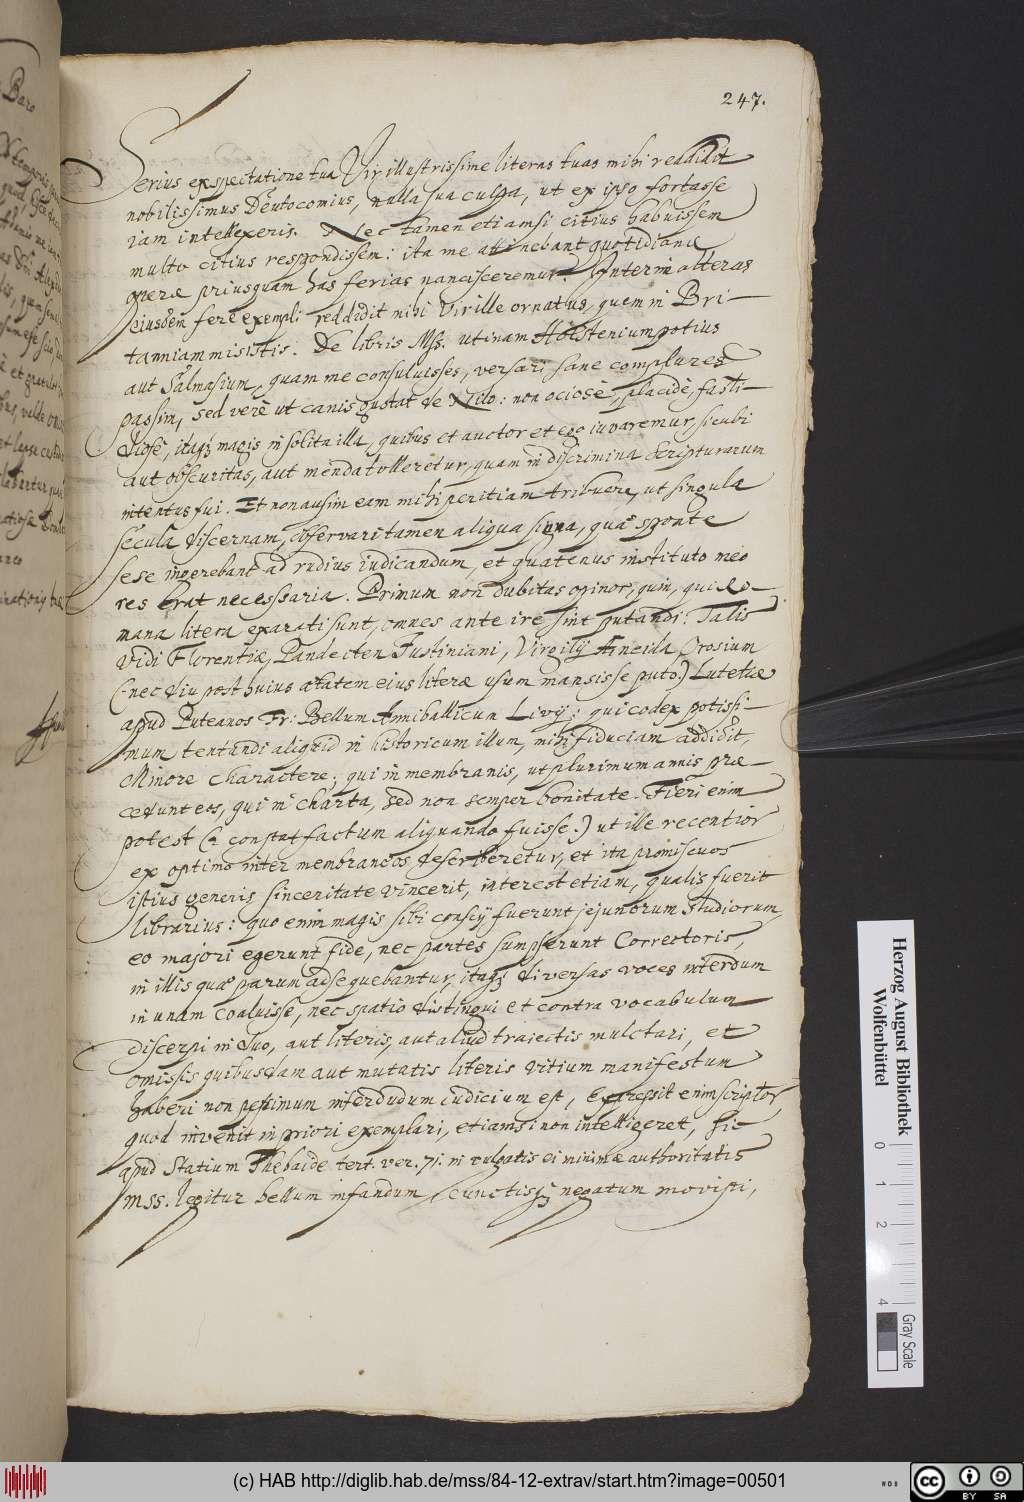 247.
Serius exspectatione tua Vir illustrissime literas tuas mihi reddidit
nobilissimus Deutocomius, nulla sua culpa, ut ex ipso fortasse
iam intellexeris. Nec tamen etiamsi citius habuissem
multo citius respondissem: ita me attinebant quotidianae
operae priusquam has ferias nancisceremur. Interim alteras
eiusdem ferè exempli reddidit mihi Vir ille ornatus, quem in Bri-
tanniam misistis. De libris Mss. utinam Holstenium potius
aut Salmasium, quam me consuluisses, versari sane complures
passim, sed verè ut canis gustat de Nilo: non ociosè, placidè, fasti-
diosè, itaq; magis in solita illa, quibus et auctor et ego iuvaremur, sicubi
aut obscuritas, aut menda tolleretur, quam in discrimina Scripturarum
intentus fui. Et non ausim eam mihi peritiam tribuere, ut singula
secula discernam, observavi tamen aliqua signa, quae sponte
sese ingerebant ad rudius iudicandum, et quatenus instituto meo
res erat necessaria. Primum non dubitas opinor, quin, qui Ro-
mana litera exarati sunt, omnes ante ire sint putandi: Talis
vidi Florentiae, Pandecten Justiniani, Virgilij Aeneida Orosium
(nec diu post huius aetatem eius literae usum mansisse puto) Lutetiae
apud Puteanos Fr: Bellum Anniballicum Livij: qui codex potissi-
mum tentandi aliquid in historicum illum, mihi fiduciam addidit,
Minore charactere; qui in membranis, ut plurimum annis prae-
cedunt eos, qui in charta, sed non semper bonitate. Fieri enim
potest (& constat factum aliquando fuisse:) ut ille recentior
ex optimo inter membraneos describeretur, et ita promiscuos
istius generis sinceritate vincerit, interest etiam, qualis fuerit
librarius: quo enim magis sibi conscij fuerunt jejunorum studiorum,
eo majori egerunt fide, nec partes sumpserunt Correctoris,
in illis quae parum adsequebantur, itaq; diversas voces interdum
in unam coaluisse, nec spatio distingui et contra vocabulum
discerpi in duo, aut literis, aut aliud traiectis mulctari, et
omissis quibusdam aut mutatis literis vitium manifestum
haberi non pessimum interdudum iudicium est, Expressit enim scriptor,
quod invenit in priori exemplari, etiamsi non intelligeret, sic
apud Statium Thebaide tert. ver. 71. in vulgatis ei minimae authoritatis
mss. legitur bellum infandum, cunctisq; negatum movisti,
Herzog August Bibliothek
Wolfenbüttel
0 1 2 4
Gray Scale
(c) HAB http://diglib.hab.de/mss/84-12-extrav/start.htm?image=00501
cc BY SA